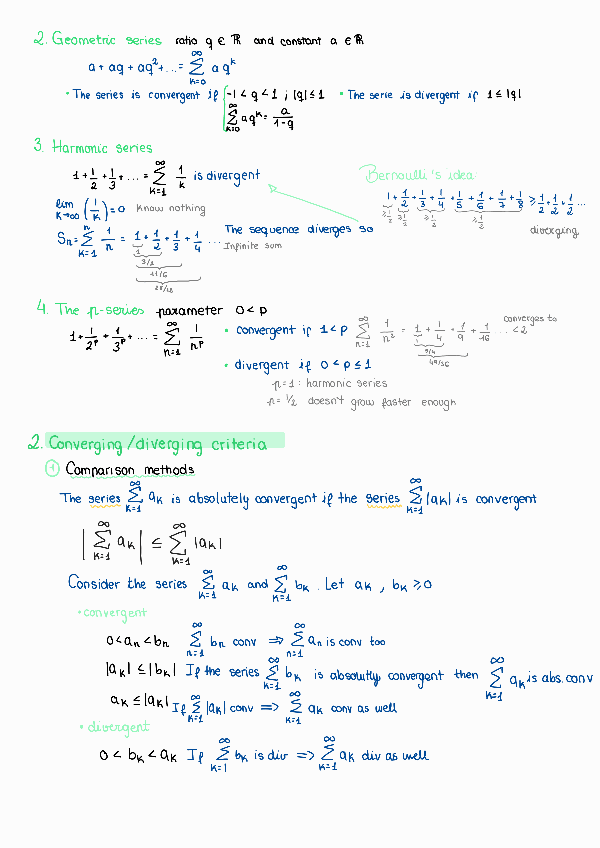 2. Geometric series ratio q ∈ ℝ and constant a ∈ ℝ
a + aq + aq² + ... = ∑_{k=0}^{∞} a q^k
• The series is convergent if { -1 < q < 1 ; |q| ≤ 1 • The serie is divergent if 1 ≤ |q|
∑_{k=0}^{∞} a q^k = a/(1-q)
3. Harmonic series
1 + 1/2 + 1/3 + ... = ∑_{k=1}^{∞} 1/k is divergent
Bernoulli's idea
1 + 1/2 + 1/3 + 1/4 + 1/5 + 1/6 + 1/7 + 1/8 ≥ 1/2 + 1/2 + 1/2 ...
≥1/2 ≥1/2 ≥1/2 ≥1/2
diverging
lim_{k→∞} (1/k) = 0 know nothing
The sequence diverges so
Sn = ∑_{k=1}^{n} 1/n = 1 + 1/2 + 1/3 + 1/4 ... Infinite sum
1
3/2
11/6
25/12
4. The p-series parameter 0 < p
1 + 1/2^p + 1/3^p + ... = ∑_{n=1}^{∞} 1/n^p • convergent if 1 < p ∑_{n=1}^{∞} 1/n² = 1 + 1/4 + 1/9 + 1/16 ... < 2 converges to
1
5/4
49/36
• divergent if 0 < p ≤ 1
p = 1 : harmonic series
p = 1/2 doesn't grow faster enough
2. Converging / diverging criteria
① Comparison methods
The series ∑_{k=1}^{∞} a_k is absolutely convergent if the series ∑_{k=1}^{∞} |a_k| is convergent
|∑_{k=1}^{∞} a_k| ≤ ∑_{k=1}^{∞} |a_k|
Consider the series ∑_{k=1}^{∞} a_k and ∑_{k=1}^{∞} b_k . Let a_k , b_k ≥ 0
• convergent
0 < a_n < b_n ∑_{n=1}^{∞} b_n conv ⇒ ∑_{n=1}^{∞} a_n is conv too
|a_k| ≤ |b_k| If the series ∑_{k=1}^{∞} b_k is absolutly convergent then ∑_{k=1}^{∞} a_k is abs. conv
a_k ≤ |a_k| If ∑_{k=1}^{∞} |a_k| conv ⇒ ∑_{k=1}^{∞} a_k conv as well
• divergent
0 < b_k < a_k If ∑_{k=1}^{∞} b_k is div ⇒ ∑_{k=1}^{∞} a_k div as well